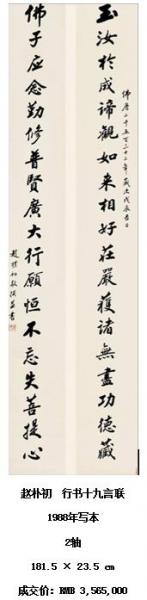 佛曆二千五百三十二年歲次戊辰春日
玉汝於成諦觀如来相好莊嚴獲諸無盡功德藏
佛子应念勤修普賢廣大行願恒不忘失菩提心
趙樸初敬撰並書
赵朴初 行书十九言联
1988年写本
2轴
181.5 × 23.5 cm
成交价: RMB 3,565,000